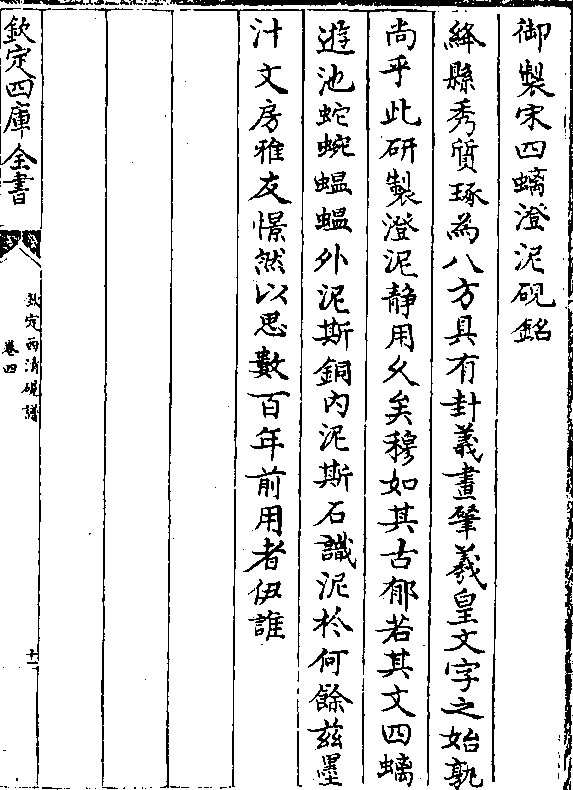 御製宋四螭澄泥硯銘
絳縣秀質琢為八方具有卦義畫肇羲皇文字之始孰
尚乎此研製澄泥静用久矣穆如其古郁若其文四螭
遊池蛇蜿蝹蝹外泥斯銅内泥斯石識泥於何餘兹墨
汁文房雅友憬然以思數百年前用者伊誰
欽定四庫全書
欽定西清硯譜
卷四